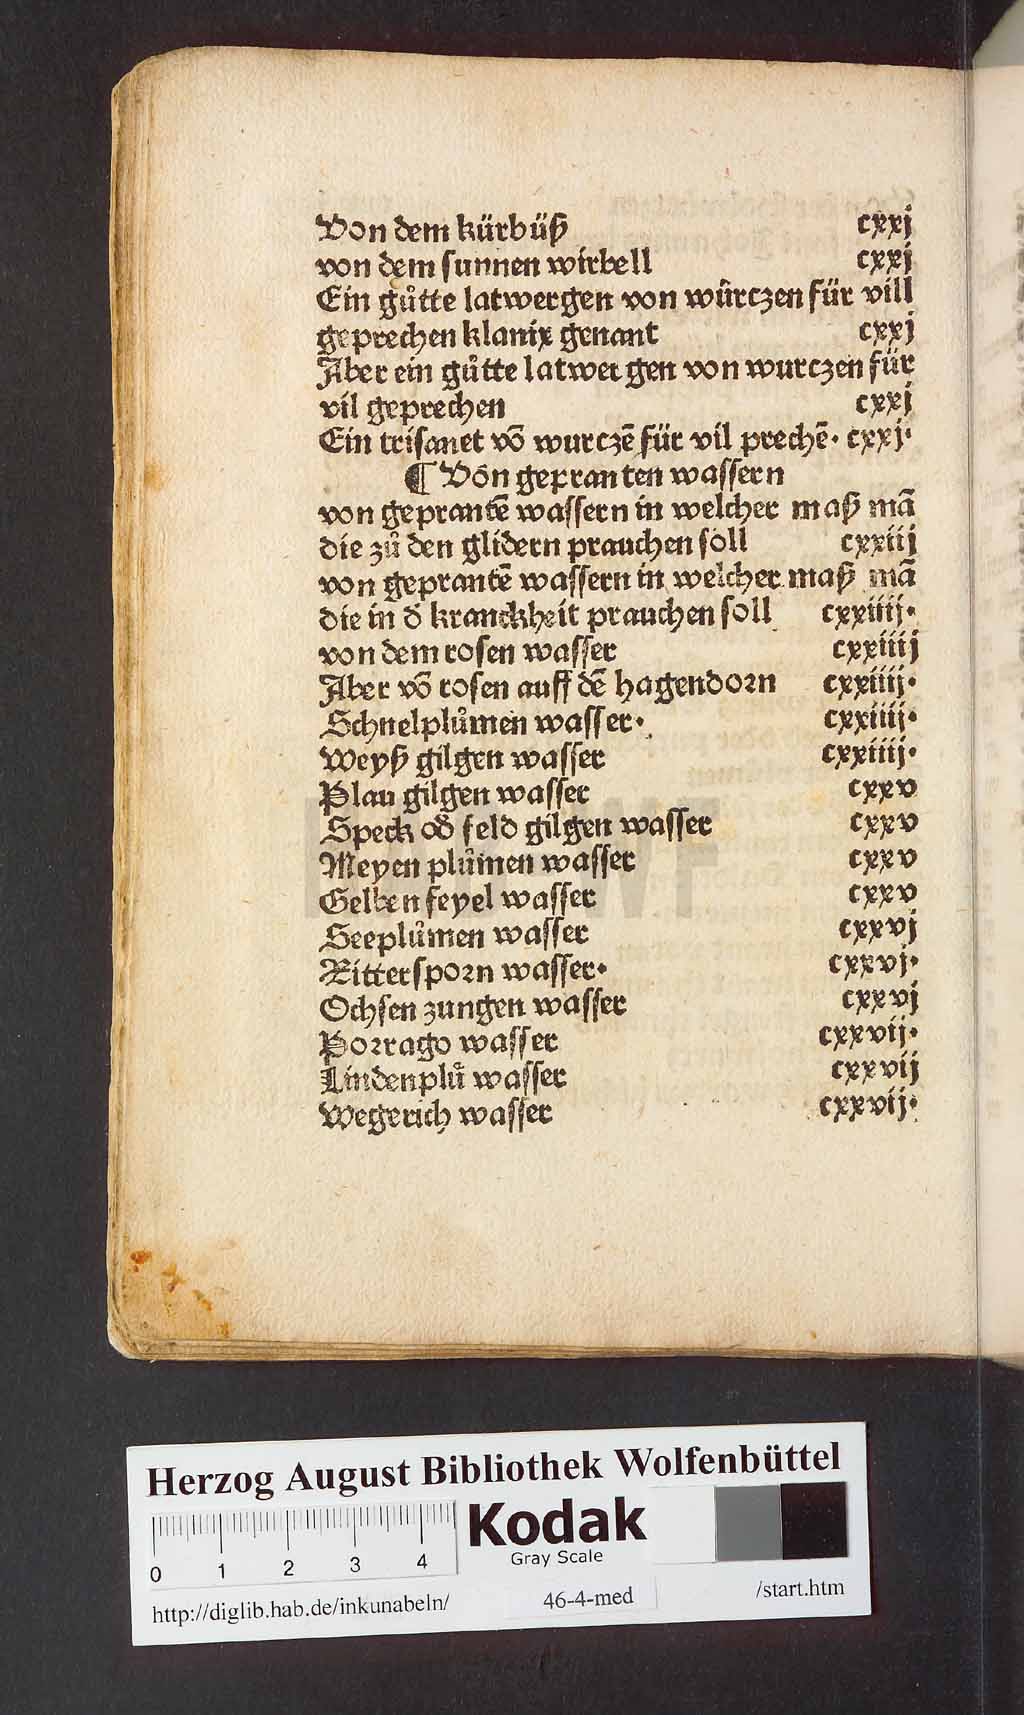 Von dem kürbüß cxxj
von dem sunnen wirbell cxxj
Ein gůtte latwergen von wůrczen für vill
geprechen klanix genant cxxj
Aber ein gůtte latwergen von wurczen für
vil geprechen cxxj
Ein trisanet võ wurczẽ für vil prechẽ· cxxj·
¶ Võn gepranten wassern
von geprantẽ wassern in welcher maß mã
die zů den glidern prauchen soll cxxiij
von geprantẽ wassern in welcher maß mã
die in d̄ kranckheit prauchen soll cxxiiij·
von dem rosen wasser cxxiiij
Aber võ rosen auff dẽ hagendorn cxxiiij·
Schnelplůmen wasser· cxxiiij·
Weyß gilgen wasser cxxiiij·
Plau gilgen wasser cxxv
Speck od̄ feld gilgen wasser cxxv
Meyen plůmen wasser cxxv
Gelben feyel wasser cxxv
Seeplůmen wasser cxxvj
Rittersporn wasser· cxxvj·
Ochsen zungen wasser cxxvj
Porrago wasser cxxvij·
Lindenplů wasser cxxvij
Wegerich wasser cxxvij·
Herzog August Bibliothek Wolfenbüttel
Kodak
Gray Scale
0 1 2 3 4
http://diglib.hab.de/inkunabeln/ 46-4-med /start.htm